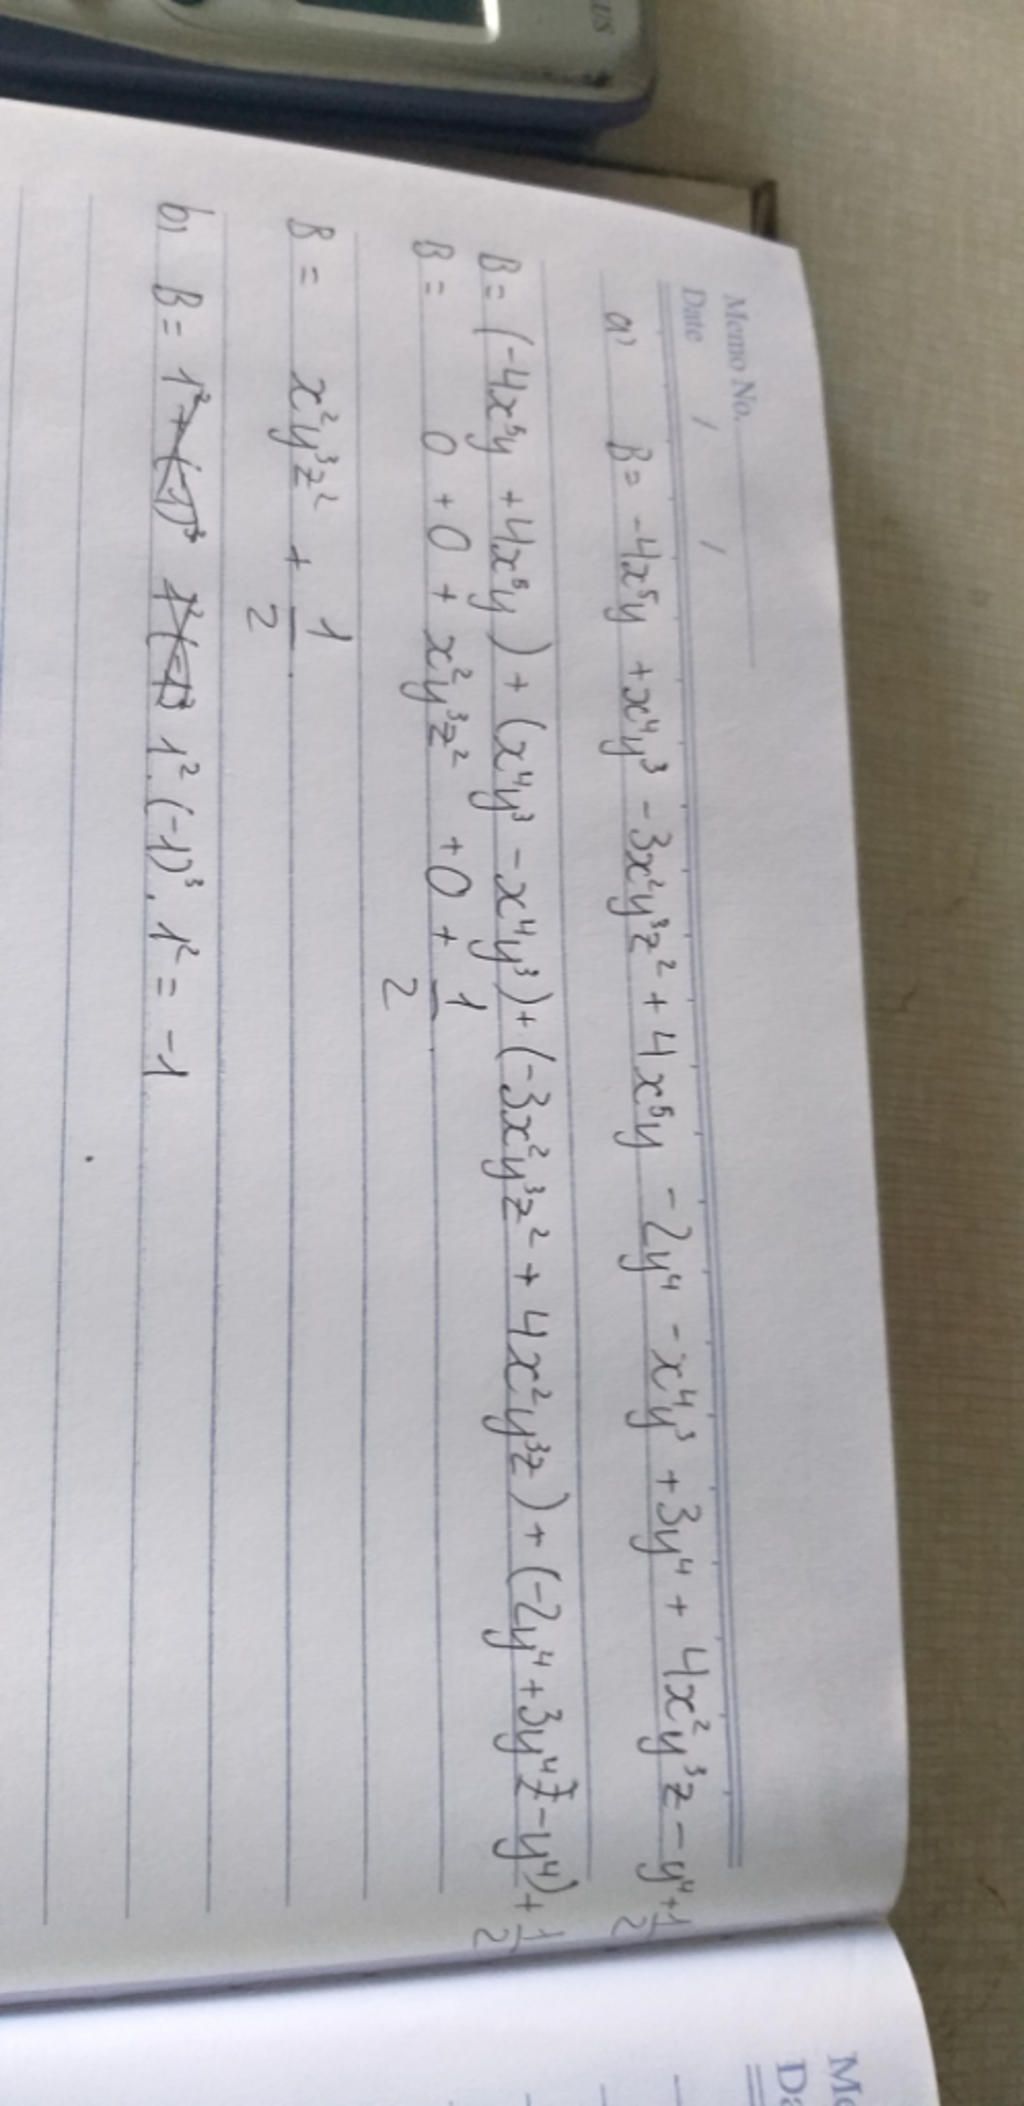 US
Memo No.
Date / /
a) B = -4x⁵y + x⁴y³ - 3x²y³z² + 4x⁵y - 2y⁴ - x⁴y³ + 3y⁴ + 4x²y³z - y⁴ + 1/2
B = (-4x⁵y + 4x⁵y) + (x⁴y³ - x⁴y³) + (-3x²y³z² + 4x²y³z) + (-2y⁴ + 3y⁴ - y⁴) + 1/2
B = 0 + 0 + x²y³z² + 0 + 1/2
B = x²y³z² + 1/2
b) B = 1² 1² . (-1)³ . 1² = -1
Me
Da